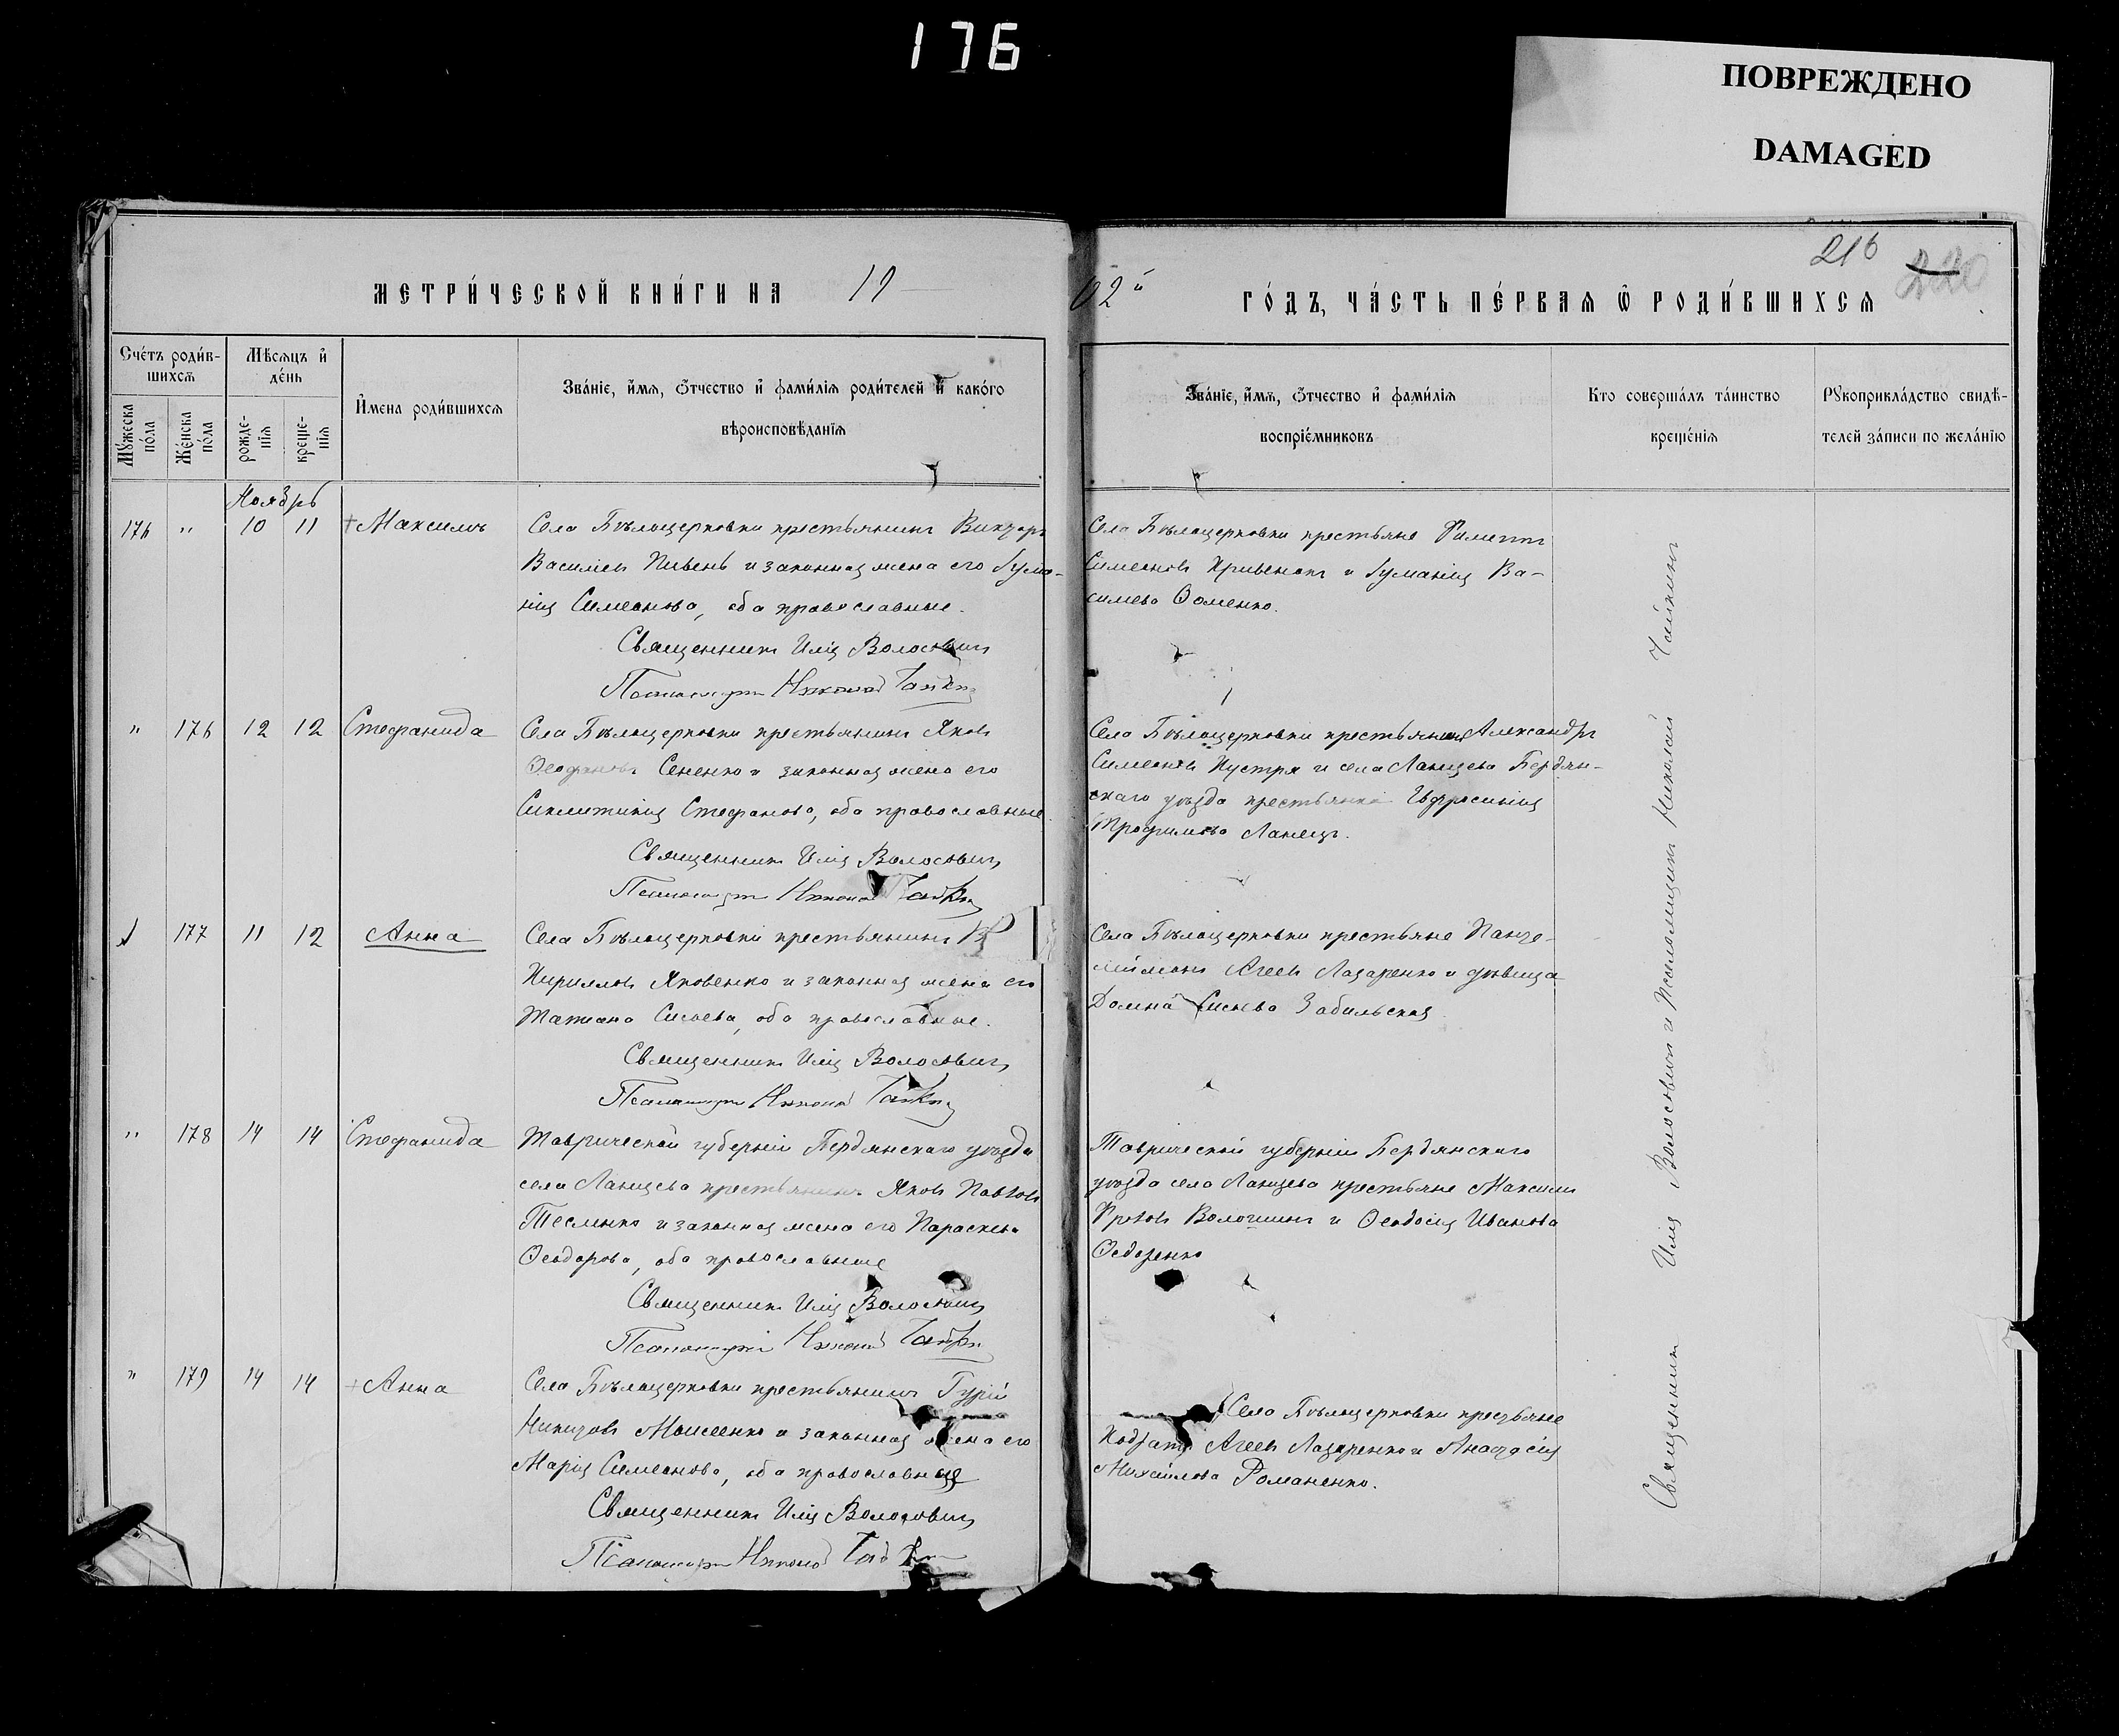 176
ПОВРЕЖДЕНО
DAMAGED
216
220
МЕТРИ́ЧЕСКОЙ КНИ́ГИ НА 19
02й ГО́ДЪ, ЧА́СТЬ ПЕ́РВАЯ Ѡ РОДИ́ВШИХСЯ
Сче́тъ роди́в-
шихся
Мѣсяцъ и
де́нь
Му́жеска по́ла
Же́нска по́ла
рожде́-
нія
креще́-
нія
И́мена роди́вшихся
Зва́ніе, и́мя, о́тчество и фами́лія роди́телей и како́го
вѣроисповѣ́данія
Зва́ніе, и́мя, о́тчество и фами́лія
воспріе́мниковъ
Кто соверша́лъ та́инство
креще́нія
Рукоприкла́дство свидѣ́-
телей за́писи по жела́нію
Ноябрь
176 " 10 11 Максимъ
Села Бѣлоцерковки крестьянинъ Викторъ
Василіевъ Пивень и законная жена его Іуліа-
нія Симеонова, оба православные.
Священникъ Илія Волосовичъ
Псаломщикъ Николай
Села Бѣлоцерковки крестьяне Филиппъ
Симеоновъ Кривенокъ и Іуліанія Ва-
силіева Фоменко.
" 176 12 12 Стефанида
Села Бѣлоцерковки крестьянинъ Яковъ
Сененко и законная жена его
Синклитикія Стефанова, оба православные.
Священникъ Илія Волосовичъ
Псаломщикъ Николай
Села Бѣлоцерковки крестьянинъ Александръ
Симеоновъ Пустря и села Ланцева Бердян-
скаго уѣзда крестьянка Евфросинія
Трофимова Ланецъ.
177 11 12 Анна
Села Бѣлоцерковки крестьянинъ
Кирилловъ Яковенко и законная жена его
Татіана Сисоева, оба православные.
Священникъ Илія Волосовичъ
Псаломщикъ Николай
Села Бѣлоцерковки крестьяне Панте-
леймонъ Агеевъ Лазаренко и дѣвица
Домна Сисоева Забильская
" 178 14 14 Стефанида
Таврической губерніи Бердянскаго уѣзда
села Ланцева крестьянинъ Яковъ Павловъ
Тесленко и законная жена его Параскева
Ѳеодорова, оба православные
Священникъ Илія Волосовичъ
Псаломщикъ Николай
Таврической губерніи Бердянскаго
уѣзда села Ланцева крестьяне Максимъ
Волошинъ и Ѳеодосія Иванова
Ѳедоренко
" 179 14 14 Анна
Села Бѣлоцерковки крестьянинъ Гурій
Никитовъ Моисеенко и законная жена его
Марія Симеонова, оба православные
Священникъ Илія Волосовичъ
Псаломщикъ Николай
Села Бѣлоцерковки крестьяне
Кодратъ Агеевъ Лазаренко и Анастасія
Михайлова Романенко.
Священникъ Илія Волосовичъ и Псаломщикъ Николай